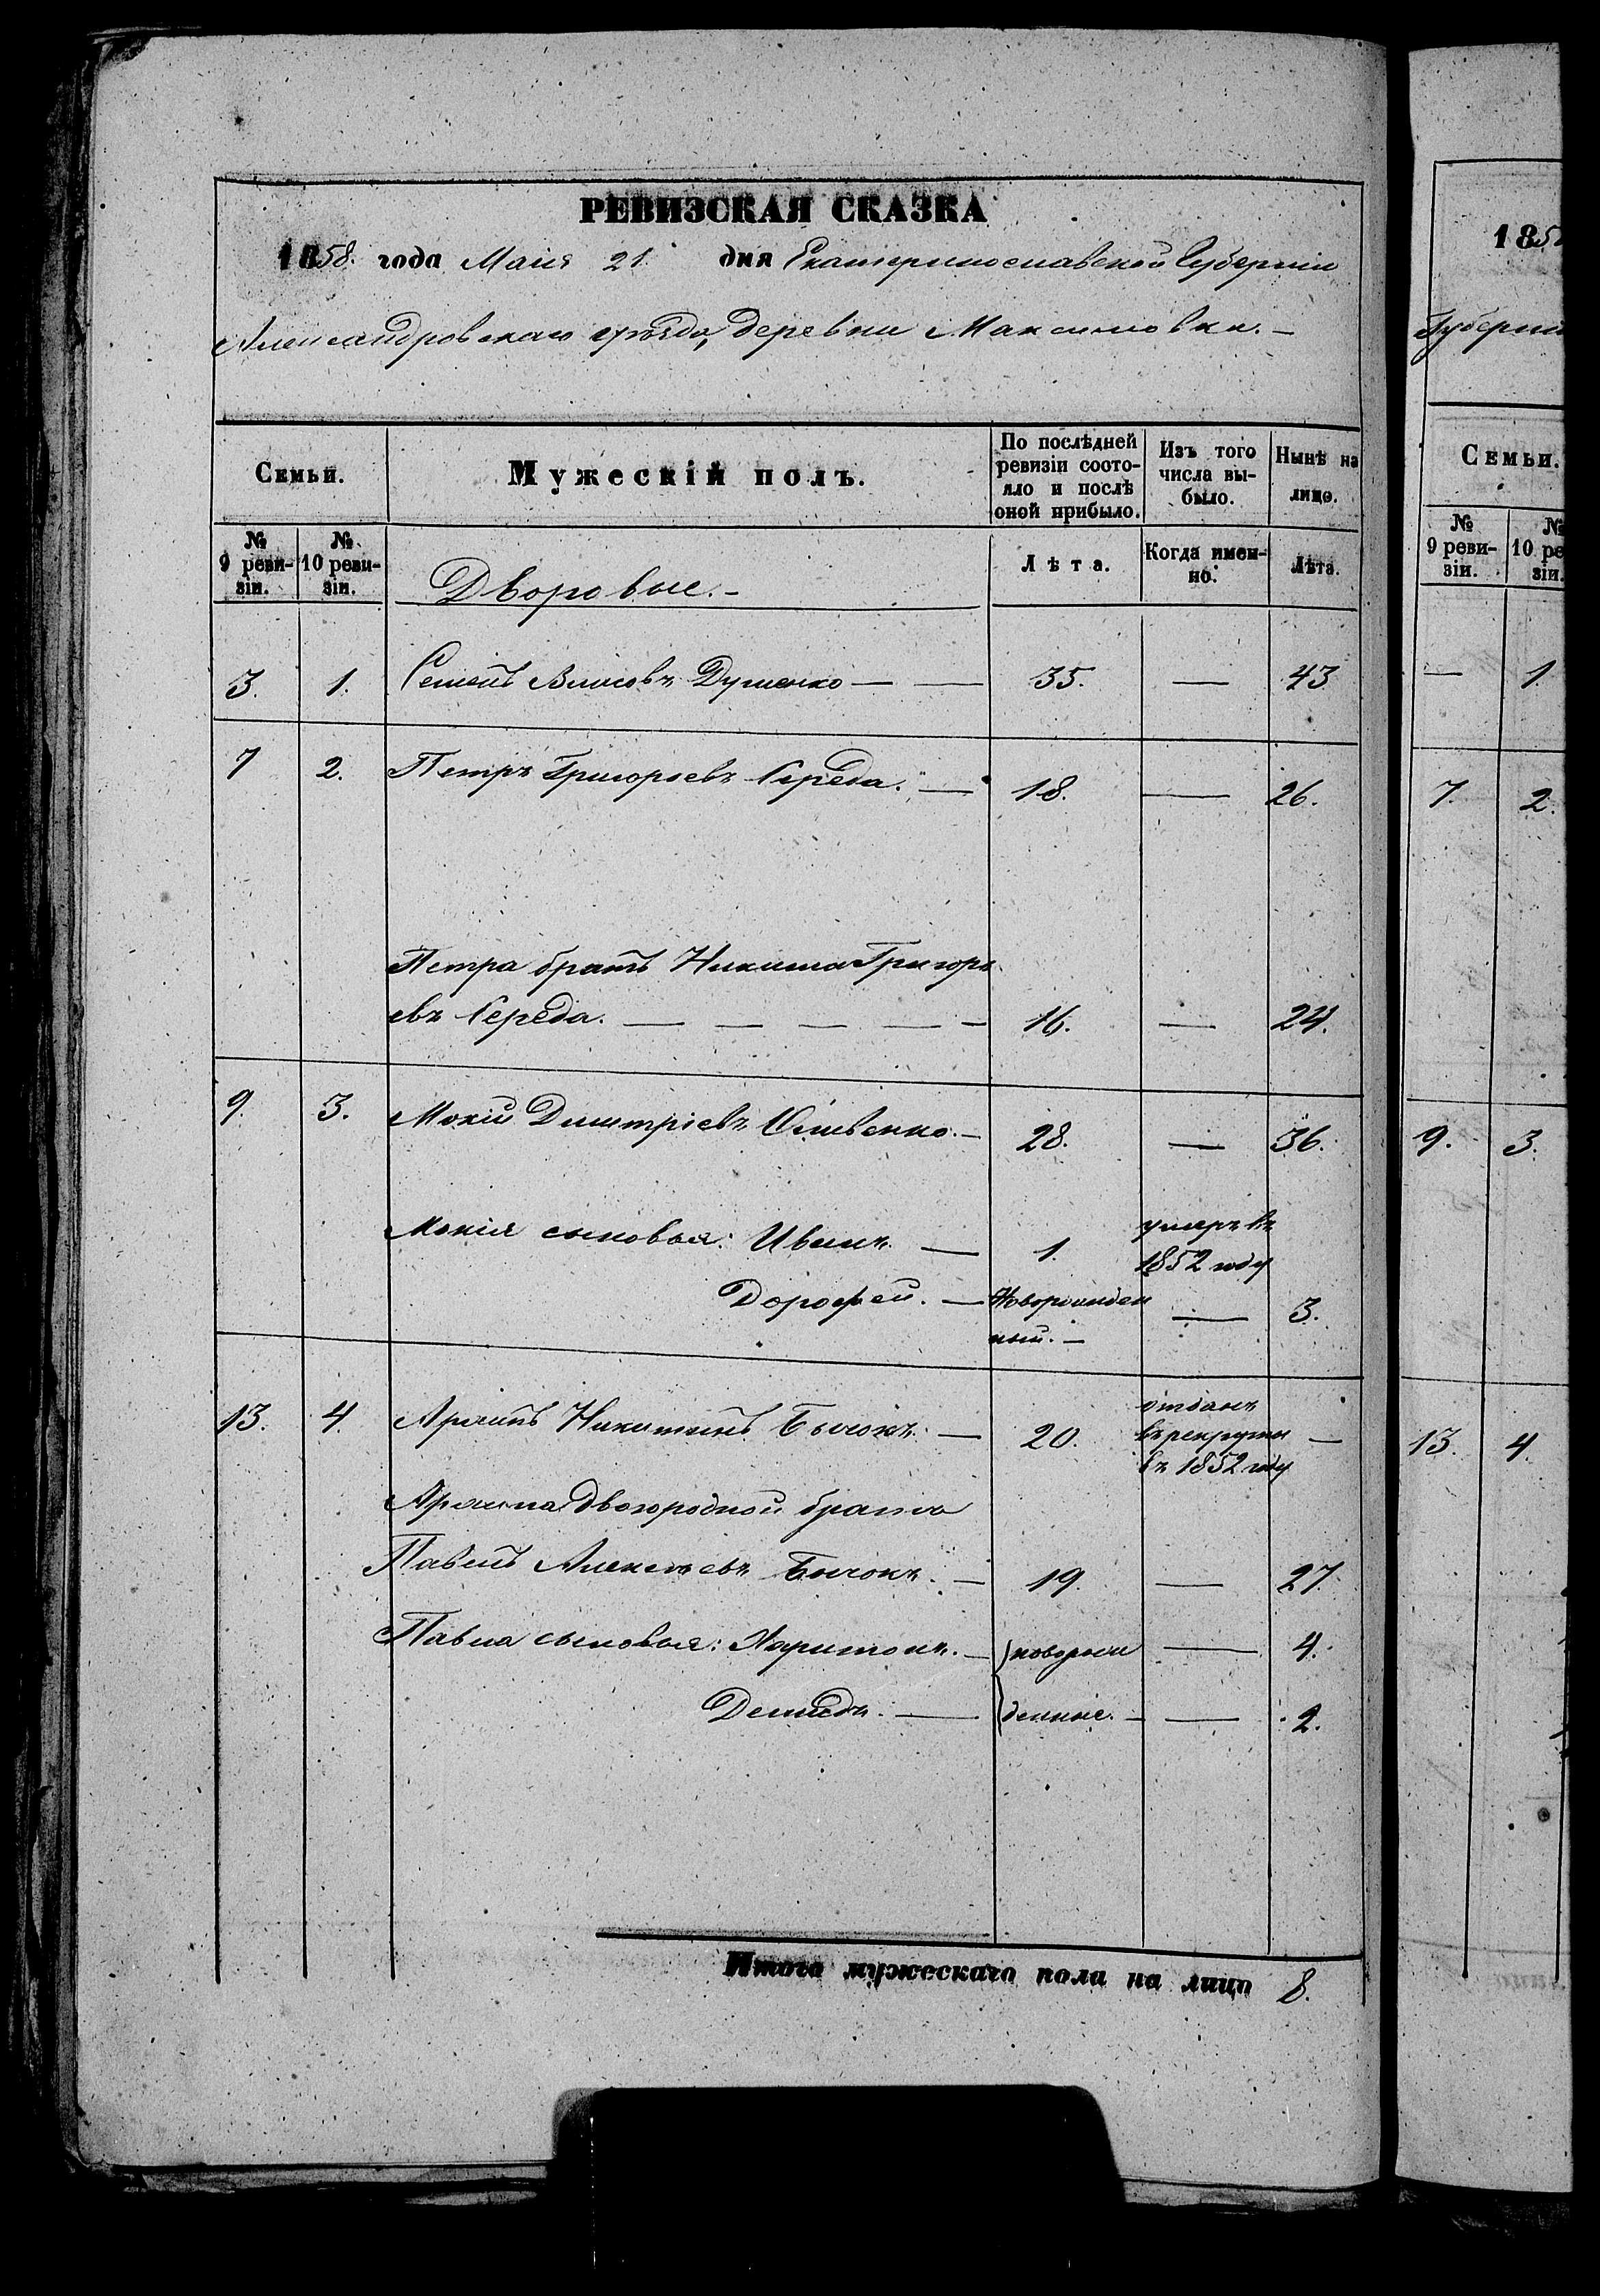 РЕВИЗСКАЯ СКАЗКА
1858. года Маія 21. дня Екатеринославской Губерніи
Александровскаго уѣзда, деревни Максимовки. —
Семьи. Мужескій полъ. По послѣдней ревизіи состояло и послѣ оной прибыло. Изъ того числа выбыло. Нынѣ на лицо.
№ 9 ревизіи. № 10 ревизіи. Дворовые. — Лѣта. Когда именно. Лѣта.
3. 1. Семенъ Власовъ — — 35. — 43
7 2. Петръ Григорьевъ Середа. — 18. — 26.
Петра братъ Никита Григорь
евъ Середа. — — — — — 16. — 24.
9. 3. Мокій Дмитріевъ — 28. — 36.
Мокія сыновья: Иванъ. — 1. умеръ въ
1852 году
Дорофей. — Новорожден
ный. — — 3.
13. 4. Никитинъ Бычокъ. — 20. отданъ
въ рекруты —
въ 1852 году
двоюродной братъ
Павелъ Алексѣевъ Бычокъ. — 19. — 27.
Павла сыновья: Харитонъ. — новорож — 4.
Демидъ. — денные. — — 2.
Итого мужескаго пола на лицо 8.
185
Губерніи
Семьи.
№ 9 ревизіи. № 10 ре зіи.
— 1.
7. 2.
9. 3.
13. 4.